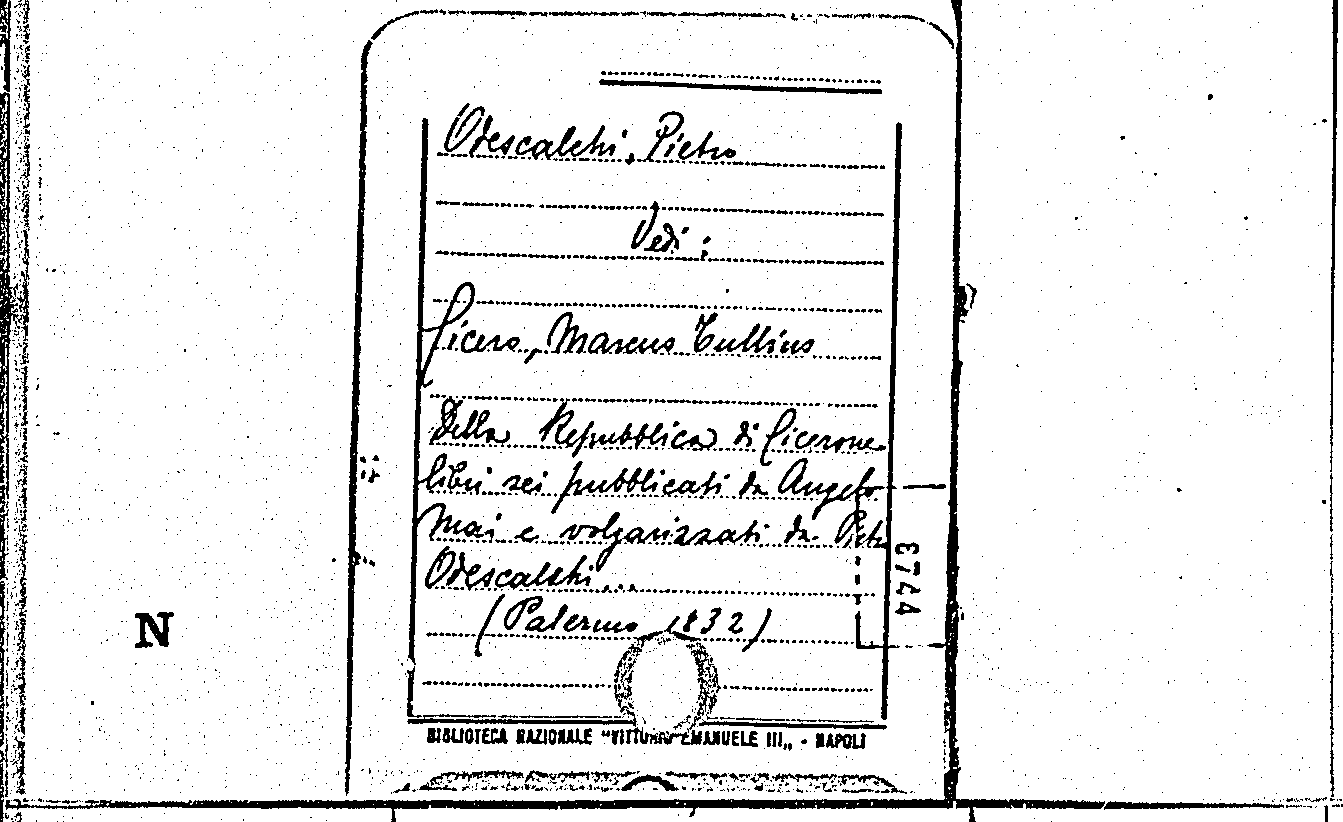 Odescalchi, Pietro
Vedi:
Cicero, Marcus Tullius
Della Repubblica di Cicerone
libri sei pubblicati da Angelo
Mai e volgarizzati da Pietro
Odescalchi...
(Palermo 1832)
3744
N
BIBLIOTECA NAZIONALE "VITTORIO EMANUELE III„ - NAPOLI